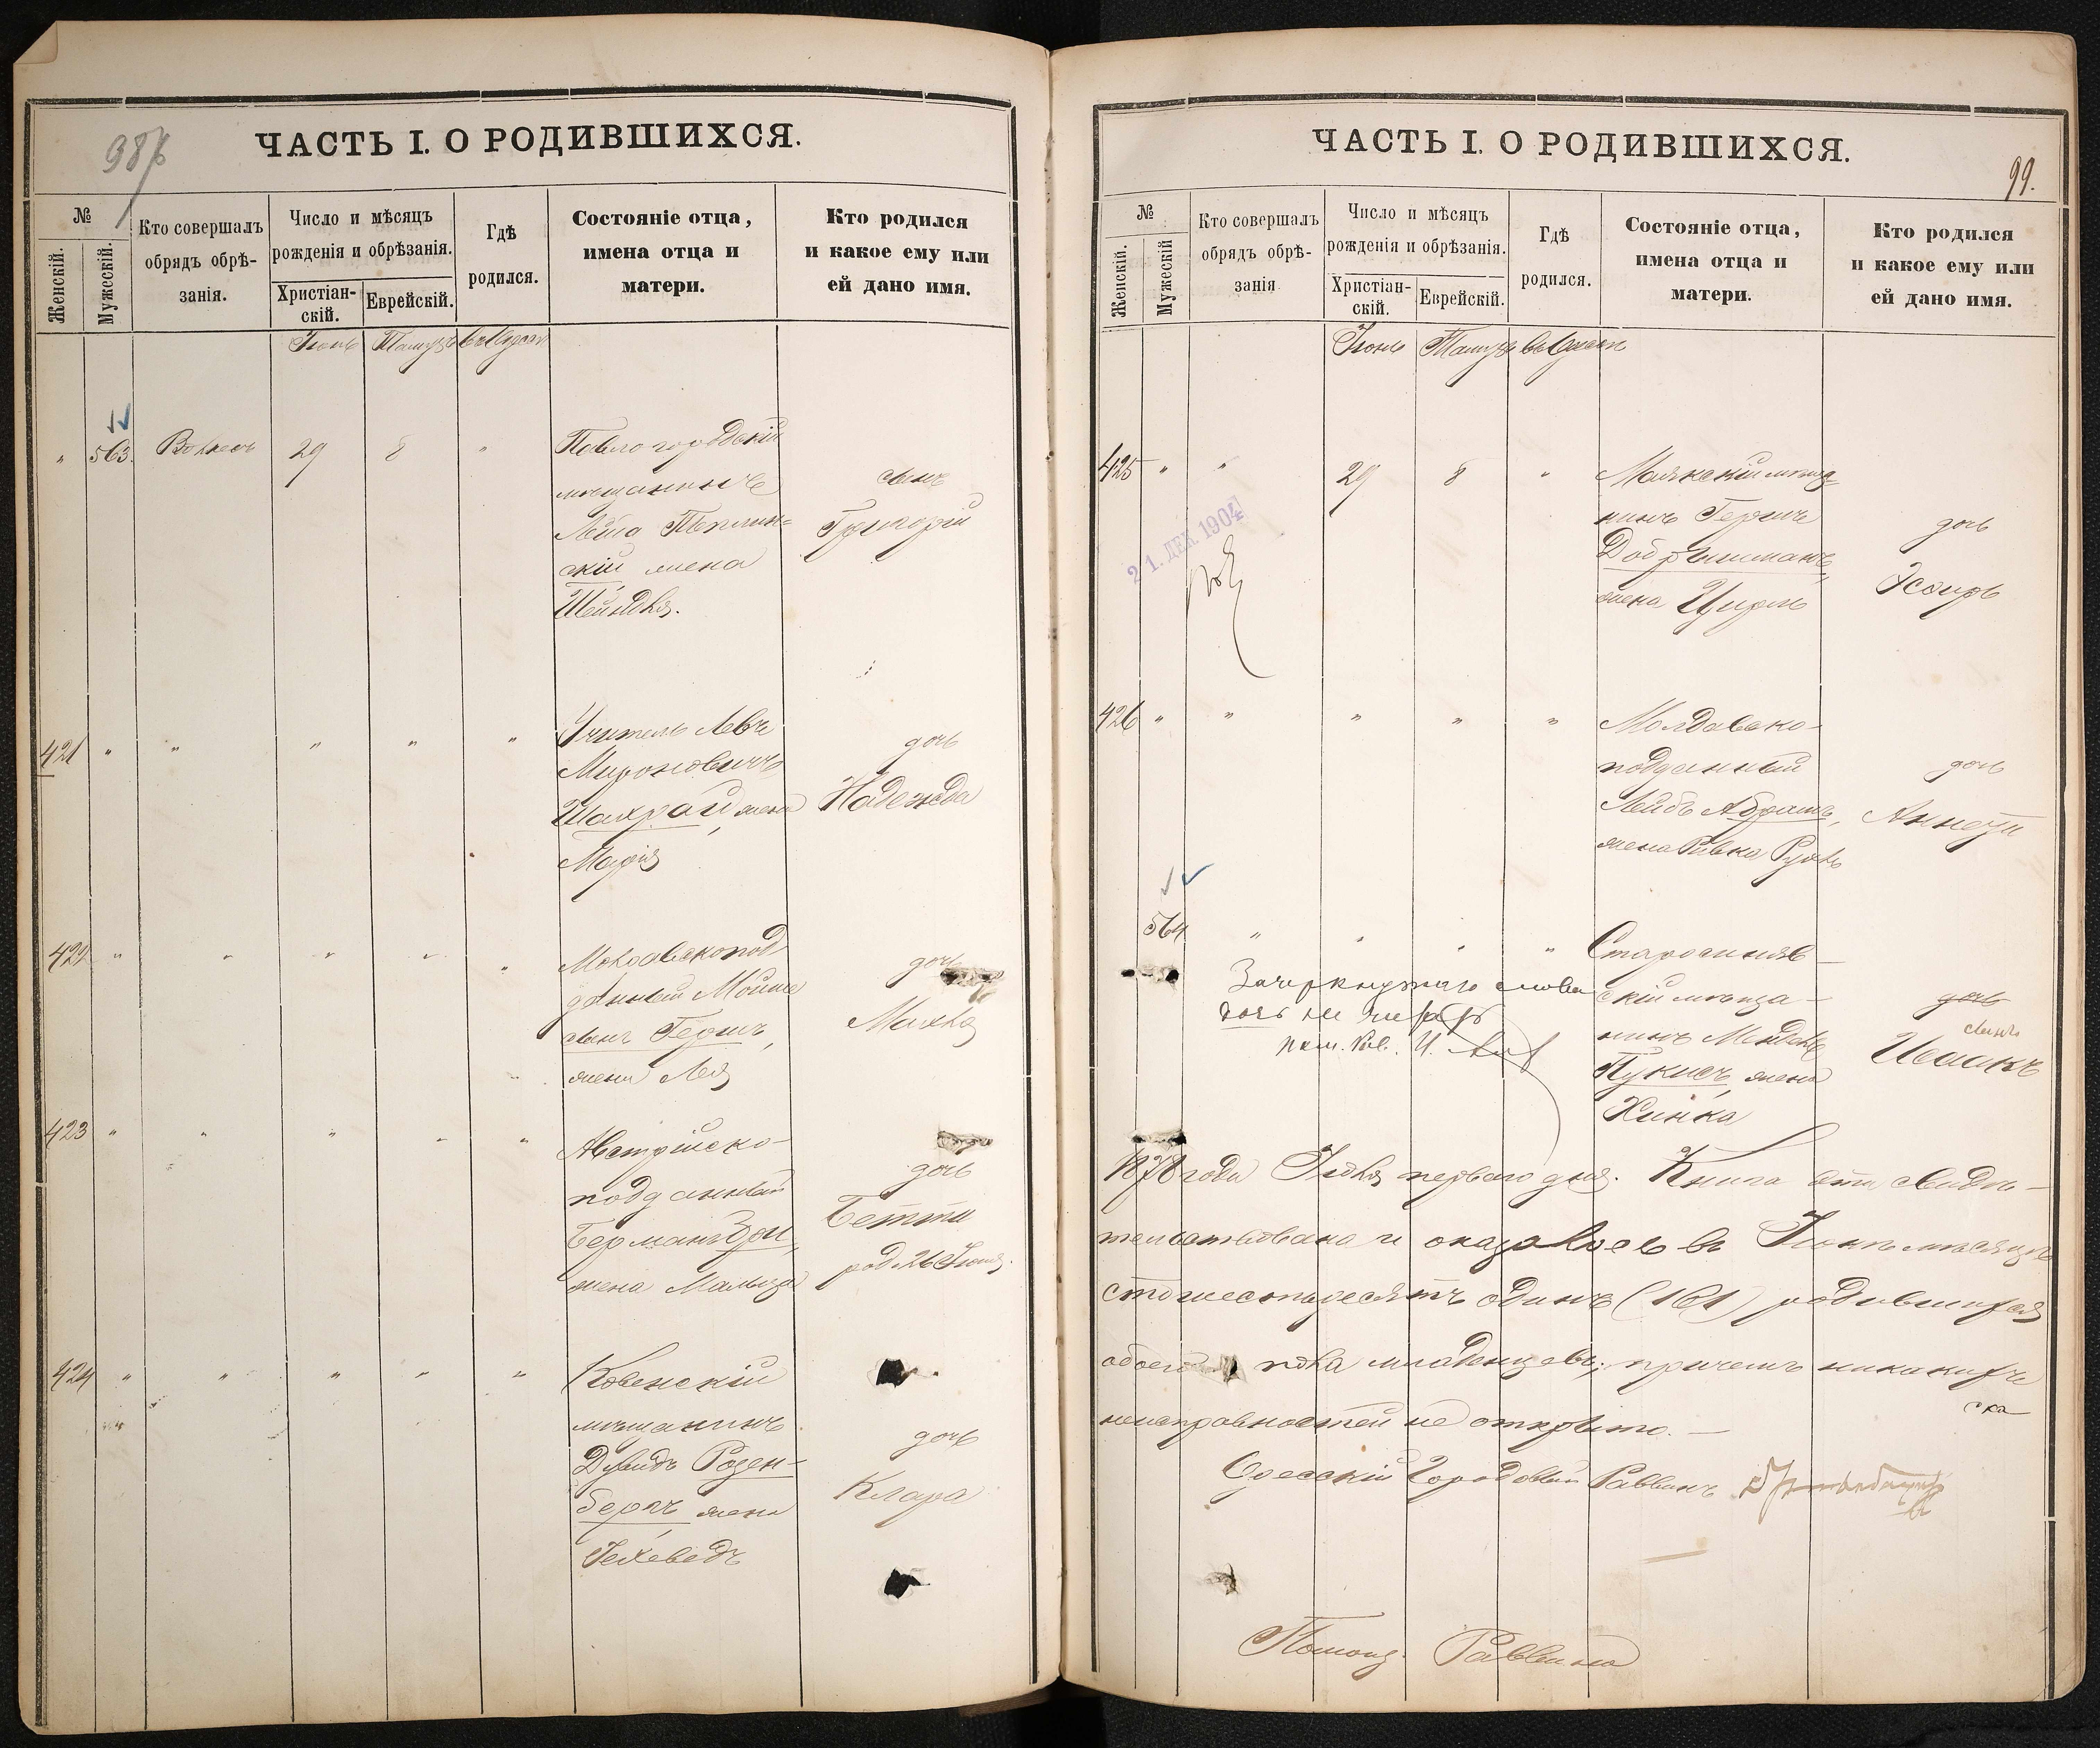 ЧАСТЬ I. О РОДИВШИХСЯ.
№
Женскій.
Мужескій.
Кто совершалъ
обрядъ обрѣ-
занія.
Число и мѣсяцъ
рожденія и обрѣзанія.
Христіан-
скій.
Еврейскій.
Гдѣ
родился.
Состояніе отца,
имена отца и
матери.
Кто родился
и какое ему или
ей дано имя.
Іюнь Тамузъ въ Одессѣ
563. 29 8 "
Павлоградскій
мѣщанинъ
Лейба Теплин=
скій жена
Шейндля.
сынъ
Григорій
421 " " " " "
Учитель Левъ
Мироновичъ
Шахрай, жена
Марія
дочь
Надежда
422 " " " " "
Молдавскопод
данный Мойше
Герцъ,
жена Лея
дочь
Малка
423 " " " " "
Австрійско-
подданный
Берманъ
жена Мальця
дочь
Бетти
род. 26 Іюня.
424 " " " " "
Ковенскій
мѣщанинъ
Давидъ Розен-
бергъ жена
Іехеведъ
дочь
Клара
ЧАСТЬ I. О РОДИВШИХСЯ.
99.
№
Женскій.
Мужескій
Кто совершалъ
обрядъ обрѣ-
занія
Число и мѣсяцъ
рожденія и обрѣзанія.
Христіан-
скій.
Еврейскій.
Гдѣ
родился.
Состояніе отца,
имена отца и
матери.
Кто родился
и какое ему или
ей дано имя.
Іюнь Тамузъ въ Одессѣ
425 " " 29 8 "
21. ДЕК. 1904
Маякскій мѣща=
нинъ Гершъ
Добришманъ,
жена Цирль
дочь
Эсѳирь
426 " " " " "
Молдавско-
подданный
Лейбъ Абрамъ,
жена Ривка Рухль
дочь
Аннета
564 " " " "
Зачеркнутаго слова
дочь не читать
Пом. Рав.
Староконстантинов-
скій мѣща-
нинъ Мендель
Пукисъ, жена
Хинка
дочь
сынъ
Ицикъ
1878 года Іюля перваго дня. Книга эта свидѣ-
тельствована и оказалось въ Іюнѣ мѣсяцѣ
сто шестьдесятъ одинъ (161) родившихся
обоего пола младенцевъ, причемъ никакихъ
неисправностей не открыто.
Одесскій Городовой Раввинъ
Помощ. Раввина